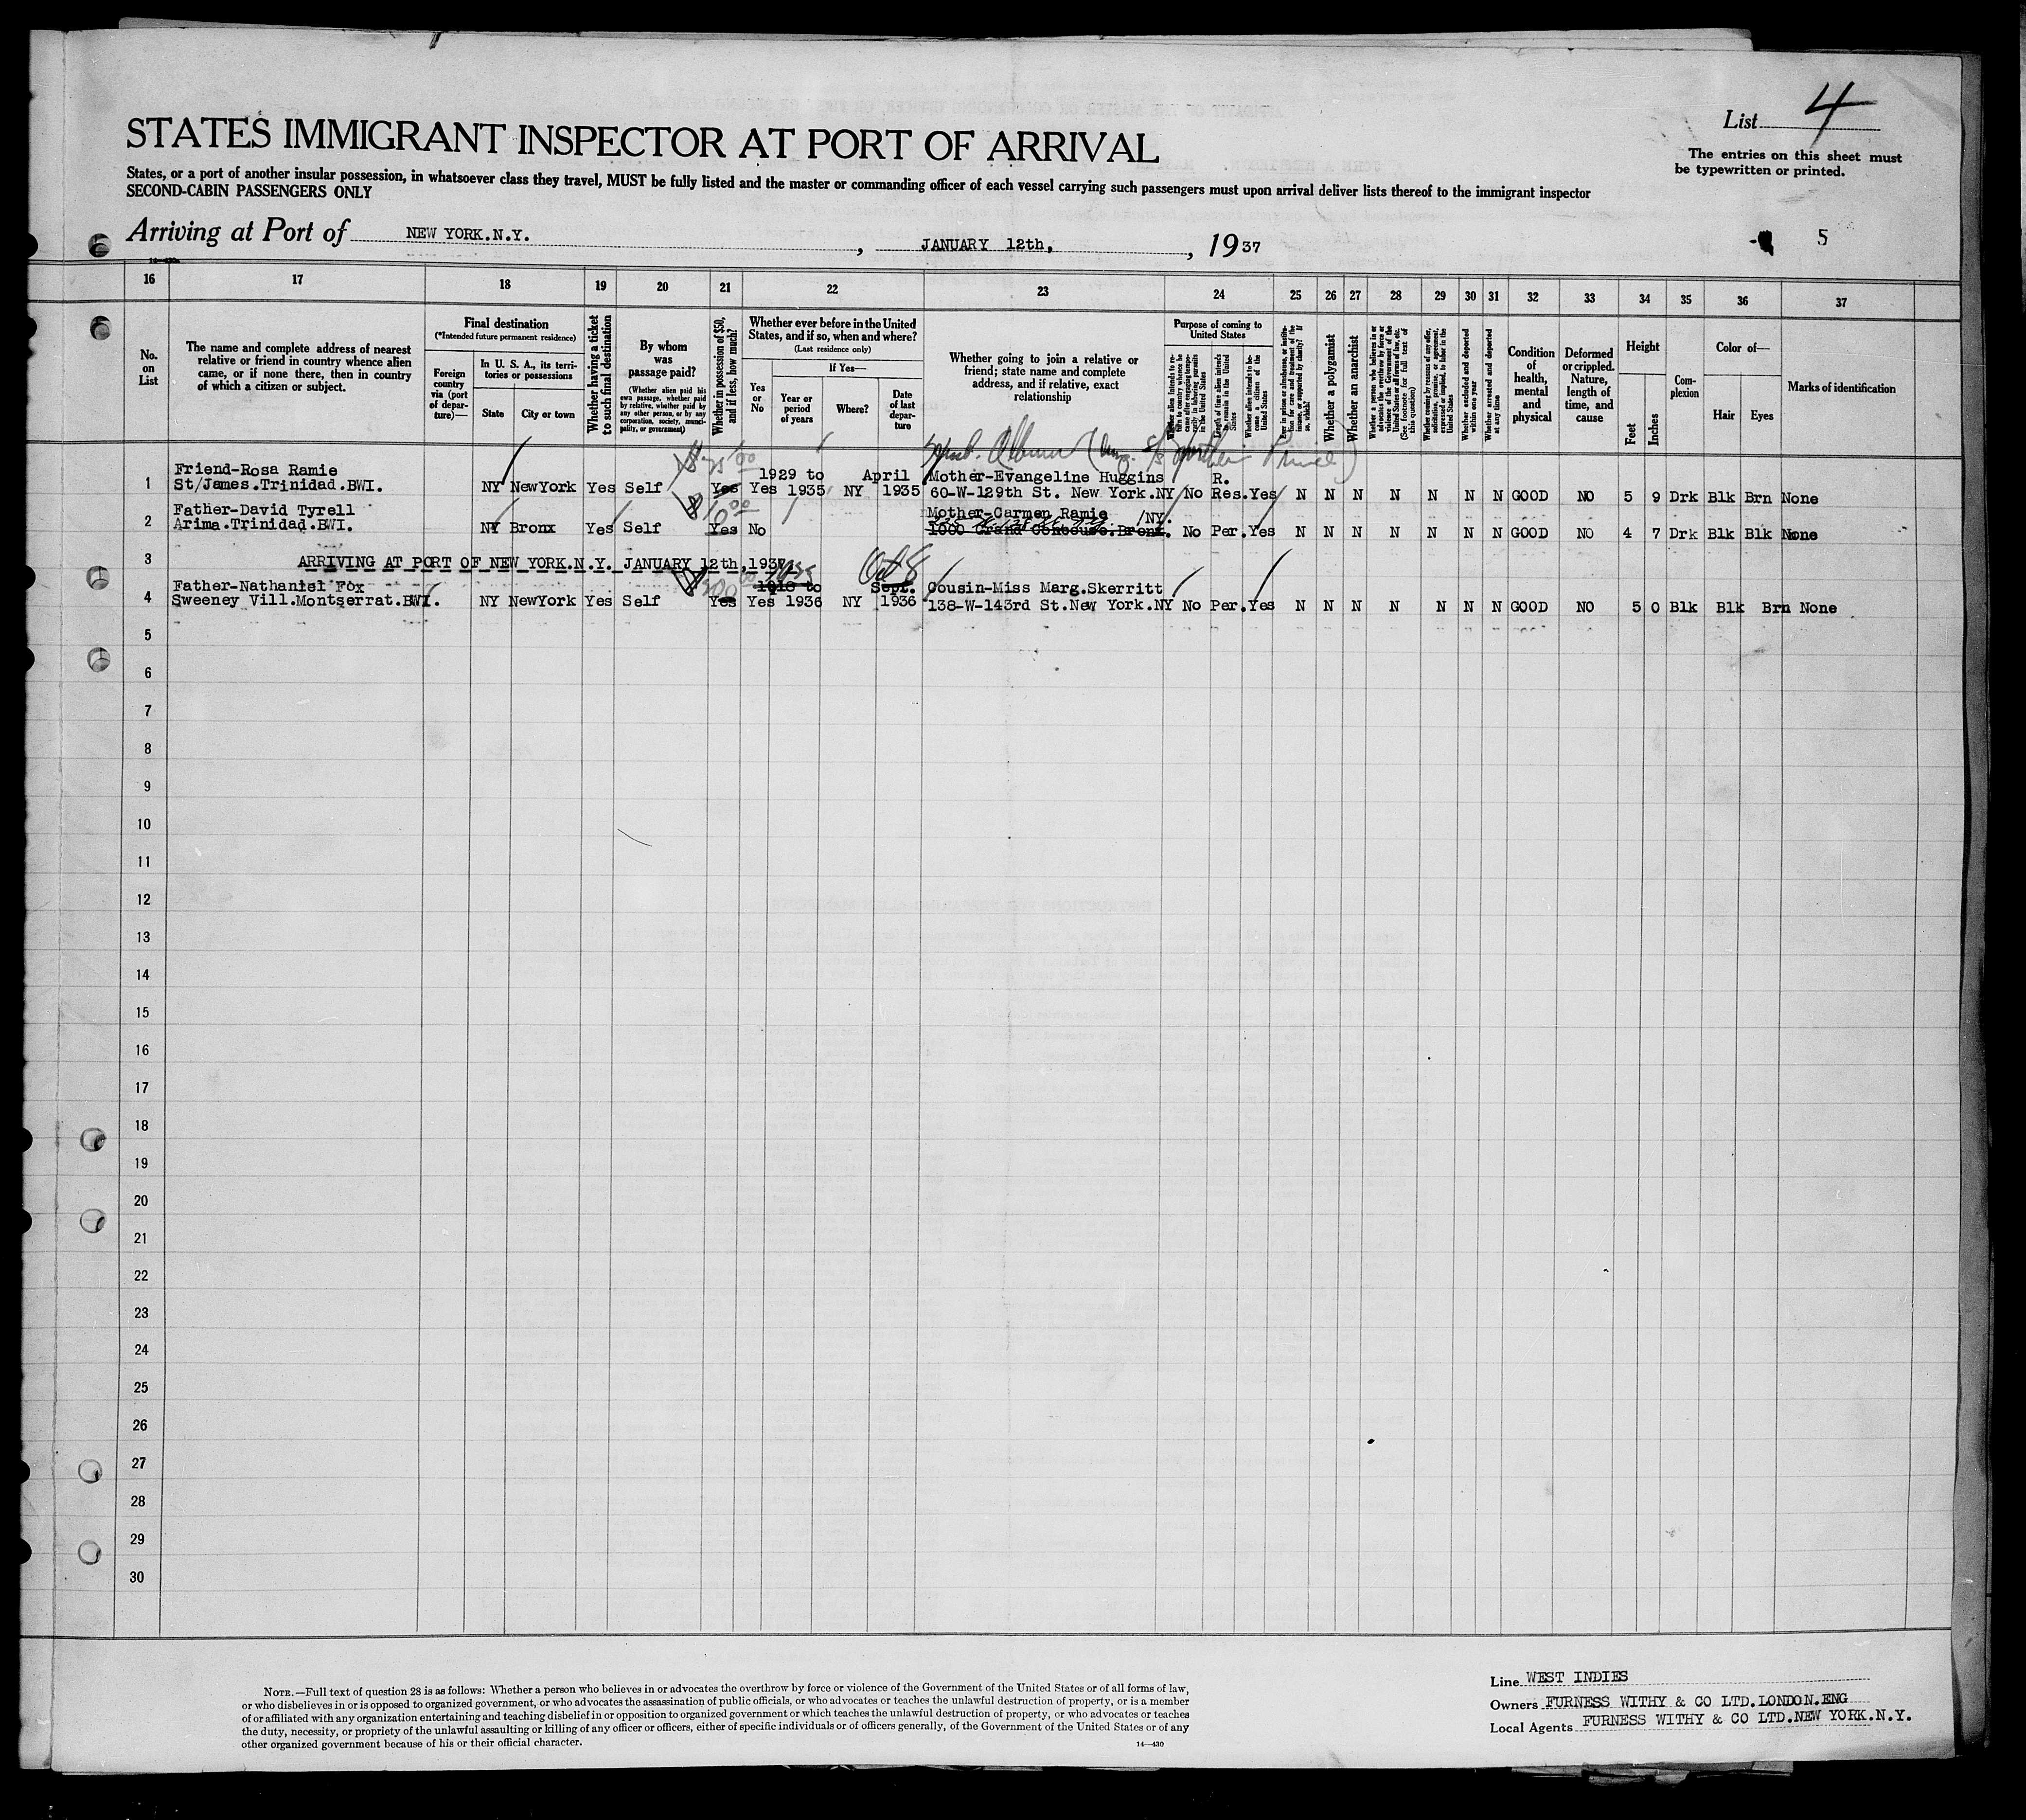 List 4
STATES IMMIGRANT INSPECTOR AT PORT OF ARRIVAL
The entries on this sheet must
be typewritten or printed.
States, or a port of another insular possession, in whatsoever class they travel, MUST be fully listed and the master or commanding officer of each vessel carrying such passengers must upon arrival deliver lists thereof to the immigrant inspector
SECOND-CABIN PASSENGERS ONLY
Arriving at Port of NEW YORK.N.Y. , JANUARY 12th, , 1937
5
16 17 18 19 20 21 22 23 24 25 26 27 28 29 30 31 32 33 34 35 36 37
No. on List
The name and complete address of nearest
relative or friend in country whence alien
came, or if none there, then in country
of which a citizen or subject.
Final destination
(*Intended future permanent residence)
Foreign country via (port of departure)—
In U. S. A., its territories or possessions
State
City or town
Whether having a ticket to such final destination
By whom was passage paid?
(Whether alien paid his own passage, whether paid by relative, whether paid by any other person, or by any corporation, society, municipality, or government)
Whether in possession of $50, and if less, how much?
Whether ever before in the United
States, and if so, when and where?
(Last residence only)
Yes or No
If Yes—
Year or period of years
Where?
Date of last departure
Whether going to join a relative or
friend; state name and complete
address, and if relative, exact
relationship
Purpose of coming to
United States
Length of time alien intends to remain in the United States
Whether alien intends to become a citizen of the United States
Whether a polygamist
Whether an anarchist
(See footnote for full text of this question)
Whether excluded and deported within one year
Whether arrested and deported at any time
Condition of health, mental and physical
Deformed or crippled. Nature, length of time, and cause
Height
Feet
Inches
Complexion
Color of—
Hair
Eyes
Marks of identification
Friend-Rosa Ramie 1929 to April Mother-Evangeline Huggins R.
1 St/James.Trinidad.BWI. NY NewYork Yes Self Yes Yes 1935 NY 1935 60-W-129th St. New York.NY No Res.Yes N N N N N N N GOOD NO 5 9 Drk Blk Brn None
Father-David Tyrell Mother-Carmen Ramie /NY.
2 Arima.Trinidad.BWI. NY Bronx Yes Self Yes No 1000 Grand Concouse.Bronx. No Per.Yes N N N N N N N GOOD NO 4 7 Drk Blk Blk None
3 ARRIVING AT PORT OF NEW YORK.N.Y. JANUARY 12th,1937.
Oct 8
Father-Nathaniel Fox 1918 to Sept. Cousin-Miss Marg.Skerritt
4 Sweeney Vill.Montserrat.BWI. NY NewYork Yes Self Yes Yes 1936 NY 1936 138-W-143rd St.New York.NY No Per.Yes N N N N N N N GOOD NO 5 0 Blk Blk Brn None
5
6
7
8
9
10
11
12
13
14
15
16
17
18
19
20
21
22
23
24
25
26
27
28
29
30
NOTE.—Full text of question 28 is as follows: Whether a person who believes in or advocates the overthrow by force or violence of the Government of the United States or of all forms of law,
or who disbelieves in or is opposed to organized government, or who advocates the assassination of public officials, or who advocates or teaches the unlawful destruction of property, or is a member
of or affiliated with any organization entertaining and teaching disbelief in or opposition to organized government or which teaches the unlawful destruction of property, or who advocates or teaches
the duty, necessity, or propriety of the unlawful assaulting or killing of any officer or officers, either of specific individuals or of officers generally, of the Government of the United States or of any
other organized government because of his or their official character.
14—430
Line WEST INDIES
Owners FURNESS WITHY & CO LTD.LONDON.ENG
Local Agents FURNESS WITHY & CO LTD.NEW YORK.N.Y.